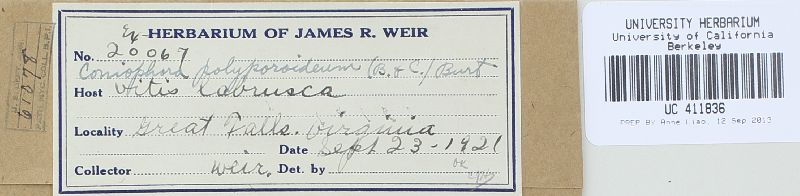 61078
Ex HERBARIUM OF JAMES R. WEIR
No. 20067
Coniophora polyporoideum (B. & C.) Burt
Host Vitis labrusca
Locality Great Falls. Virginia
Date Sept 23-1921
Collector Weir. Det. by
UNIVERSITY HERBARIUM
University of California
Berkeley
UC 411836
PREP BY Anne Liao, 12 Sep 2013